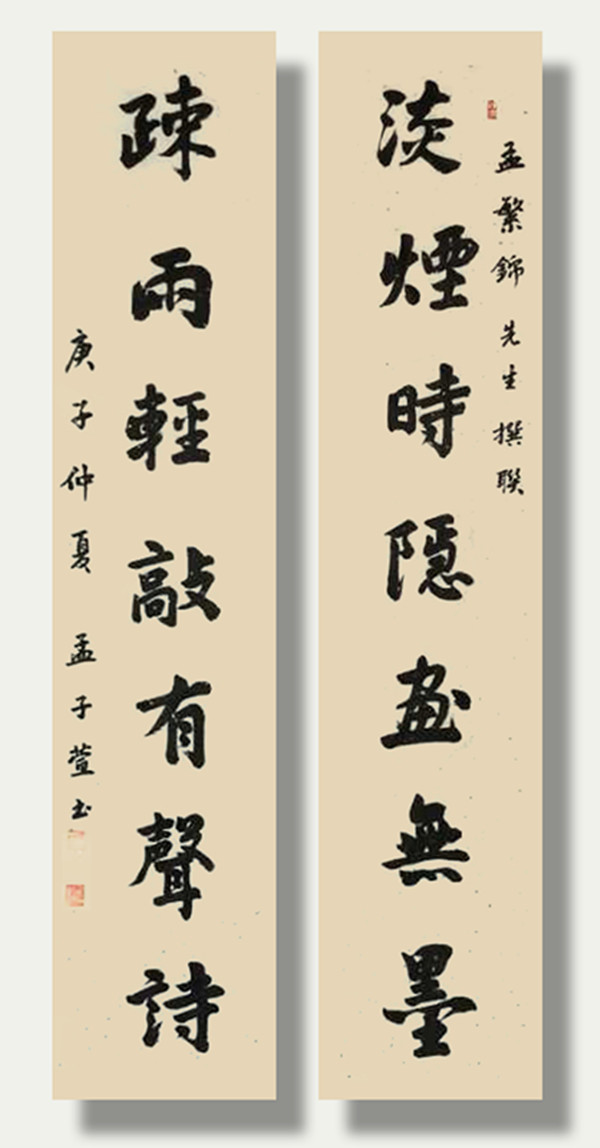 孟繁錦先生撰聯
淡煙時隱畫無墨
疎雨輕敲有聲詩
庚子仲夏 孟子萱书